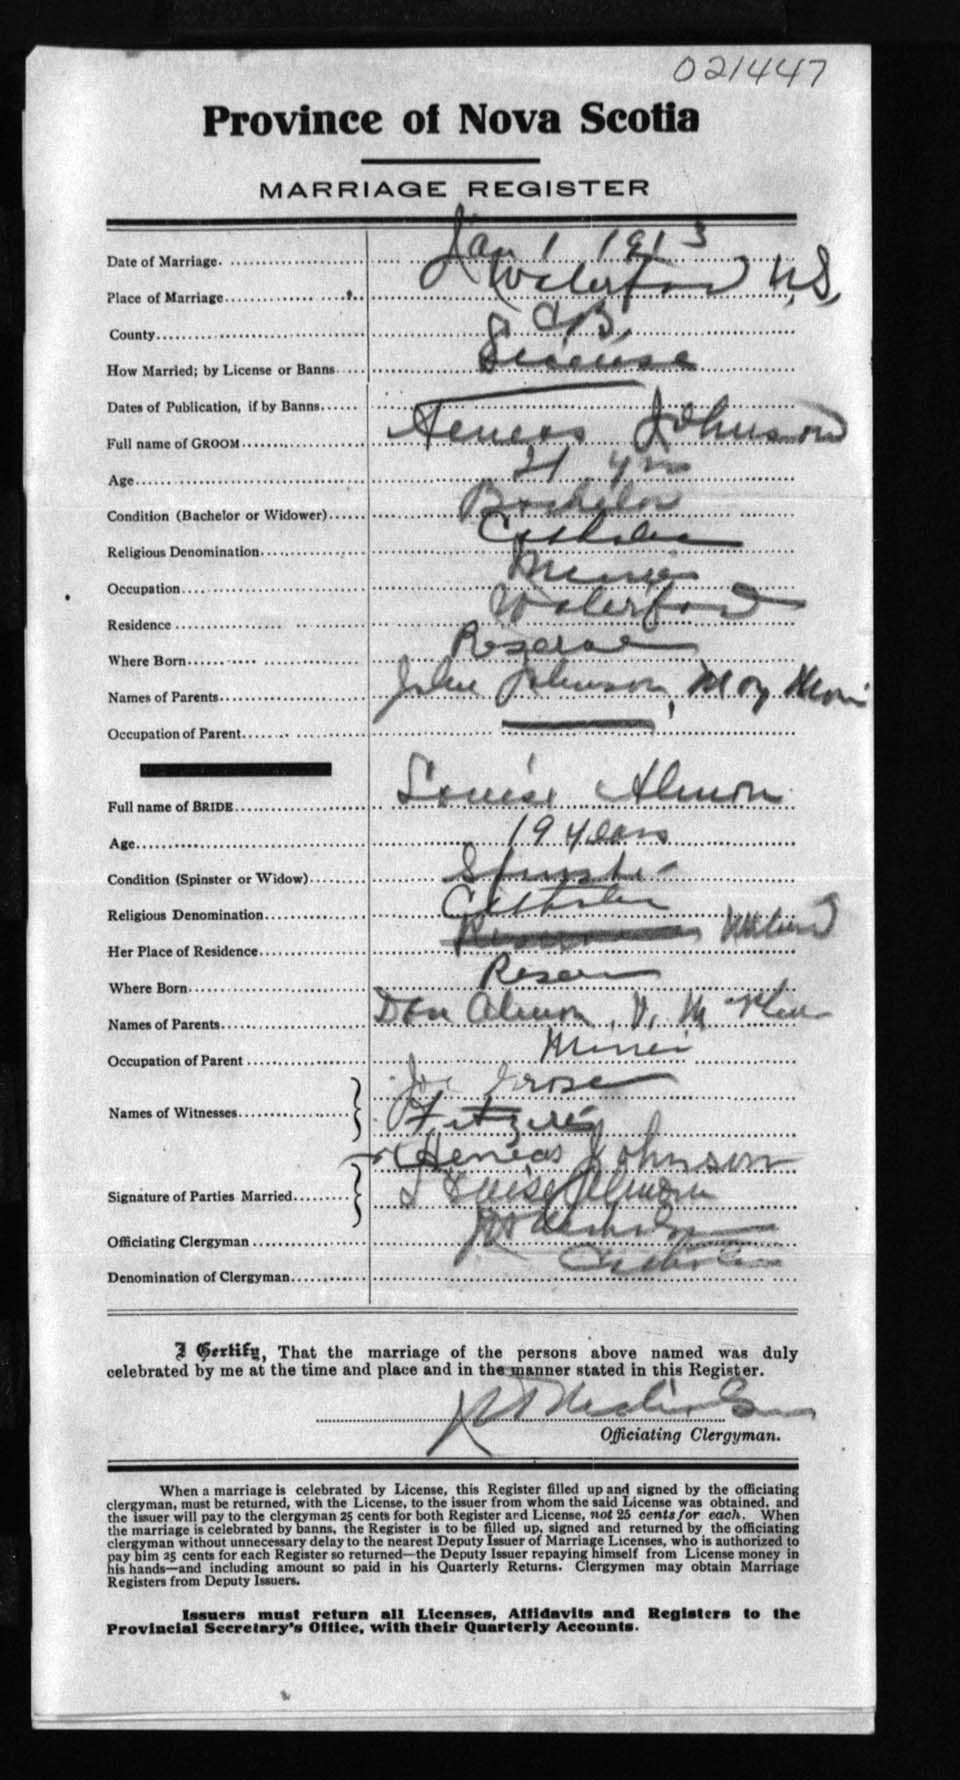 021447
Province of Nova Scotia
MARRIAGE REGISTER
Date of Marriage. Jan 1 1913
Place of Marriage Waterford N.S,
County C B,
How Married; by License or Banns License
Dates of Publication, if by Banns
Full name of GROOM Aeneas Johnson
Age 21 yrs
Condition (Bachelor or Widower) Bachelor
Religious Denomination Catholic
Occupation Miner
Residence Waterford
Where Born Reserve
Names of Parents John Johnson, Mary
Occupation of Parent
Full name of BRIDE Louise Almon
Age 19 years
Condition (Spinster or Widow) Spinster
Religious Denomination Catholic
Her Place of Residence
Where Born Reserve
Names of Parents Dan Almon,
Occupation of Parent Miner
Names of Witnesses Joe
Signature of Parties Married Aeneas Johnson
Louise Almon
Officiating Clergyman
Denomination of Clergyman Catholic
I Certify, That the marriage of the persons above named was duly
celebrated by me at the time and place and in the manner stated in this Register.
Officiating Clergyman.
When a marriage is celebrated by License, this Register filled up and signed by the officiating
clergyman, must be returned, with the License, to the issuer from whom the said License was obtained, and
the issuer will pay to the clergyman 25 cents for both Register and License, not 25 cents for each. When
the marriage is celebrated by banns, the Register is to be filled up, signed and returned by the officiating
clergyman without unnecessary delay to the nearest Deputy Issuer of Marriage Licenses, who is authorized to
pay him 25 cents for each Register so returned—the Deputy Issuer repaying himself from License money in
his hands—and including amount so paid in his Quarterly Returns. Clergymen may obtain Marriage
Registers from Deputy Issuers.
Issuers must return all Licenses, Affidavits and Registers to the
Provincial Secretary's Office, with their Quarterly Accounts.